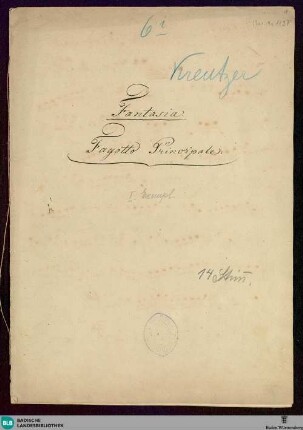 6ª
Kreutzer
Fantasia
Fagotto Principale.
14 Stim.
BLB
BADISCHE
LANDESBIBLIOTHEK
Baden-Württemberg